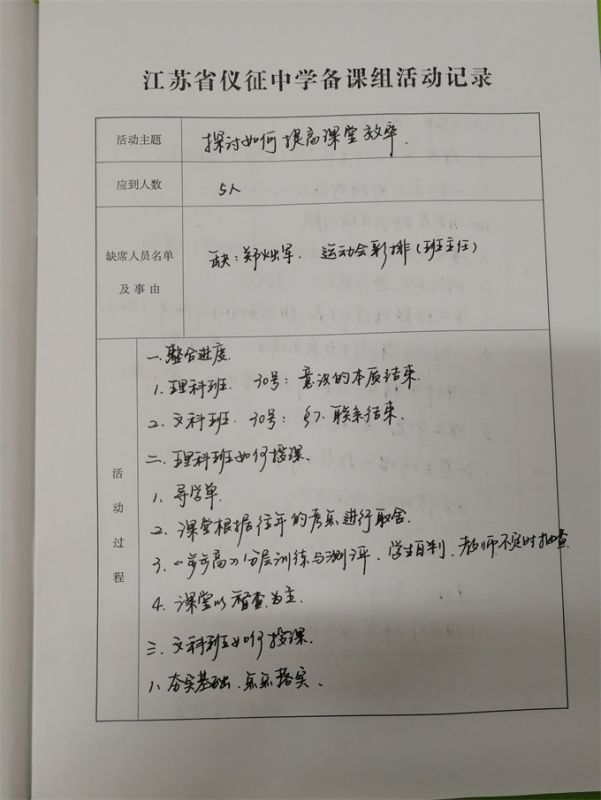 江苏省仪征中学备课组活动记录
活动主题 探讨如何提高课堂效率.
应到人数 5人
缺席人员名单及事由 缺:郑 军. 运动会彩排(班主任)
活动过程
一.整合进度.
1.理科班. 30号:意识的本质结束.
2.文科班. 30号:§7.联系结束.
二.理科班如何授课.
1、导学单.
2.课堂根据往年的考点进行取舍.
3.《步步高》分层训练与测评、学生自判、老师不定时抽查.
4.课堂以 查为主.
三.文科班如何授课.
1、夯实基础、点点落实、